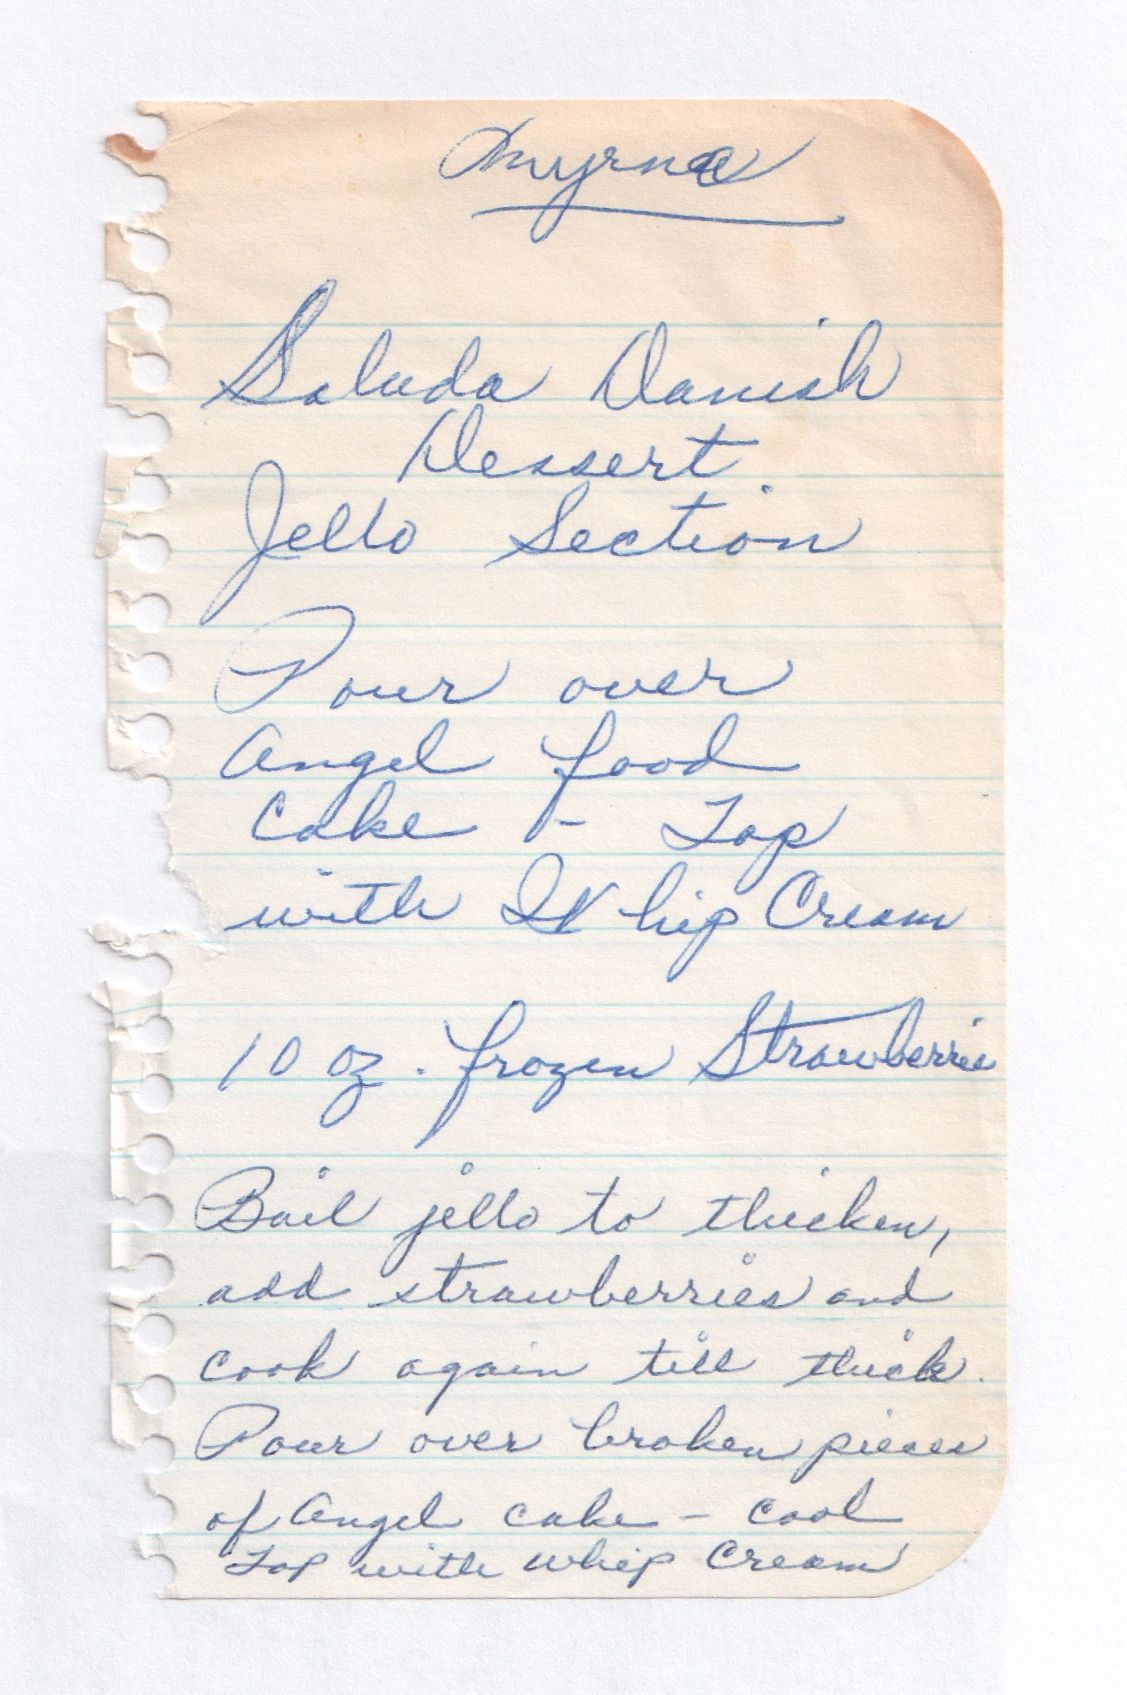 Smyrna
Salada Danish
Dessert
Jello Section
Pour over
Angel food
Cake - Top
with Whip Cream
10 oz. frozen Strawberries
Boil jello to thicken,
add strawberries and
cook again till thick.
Pour over broken pieces
of Angel cake - Cool
Top with Whip Cream